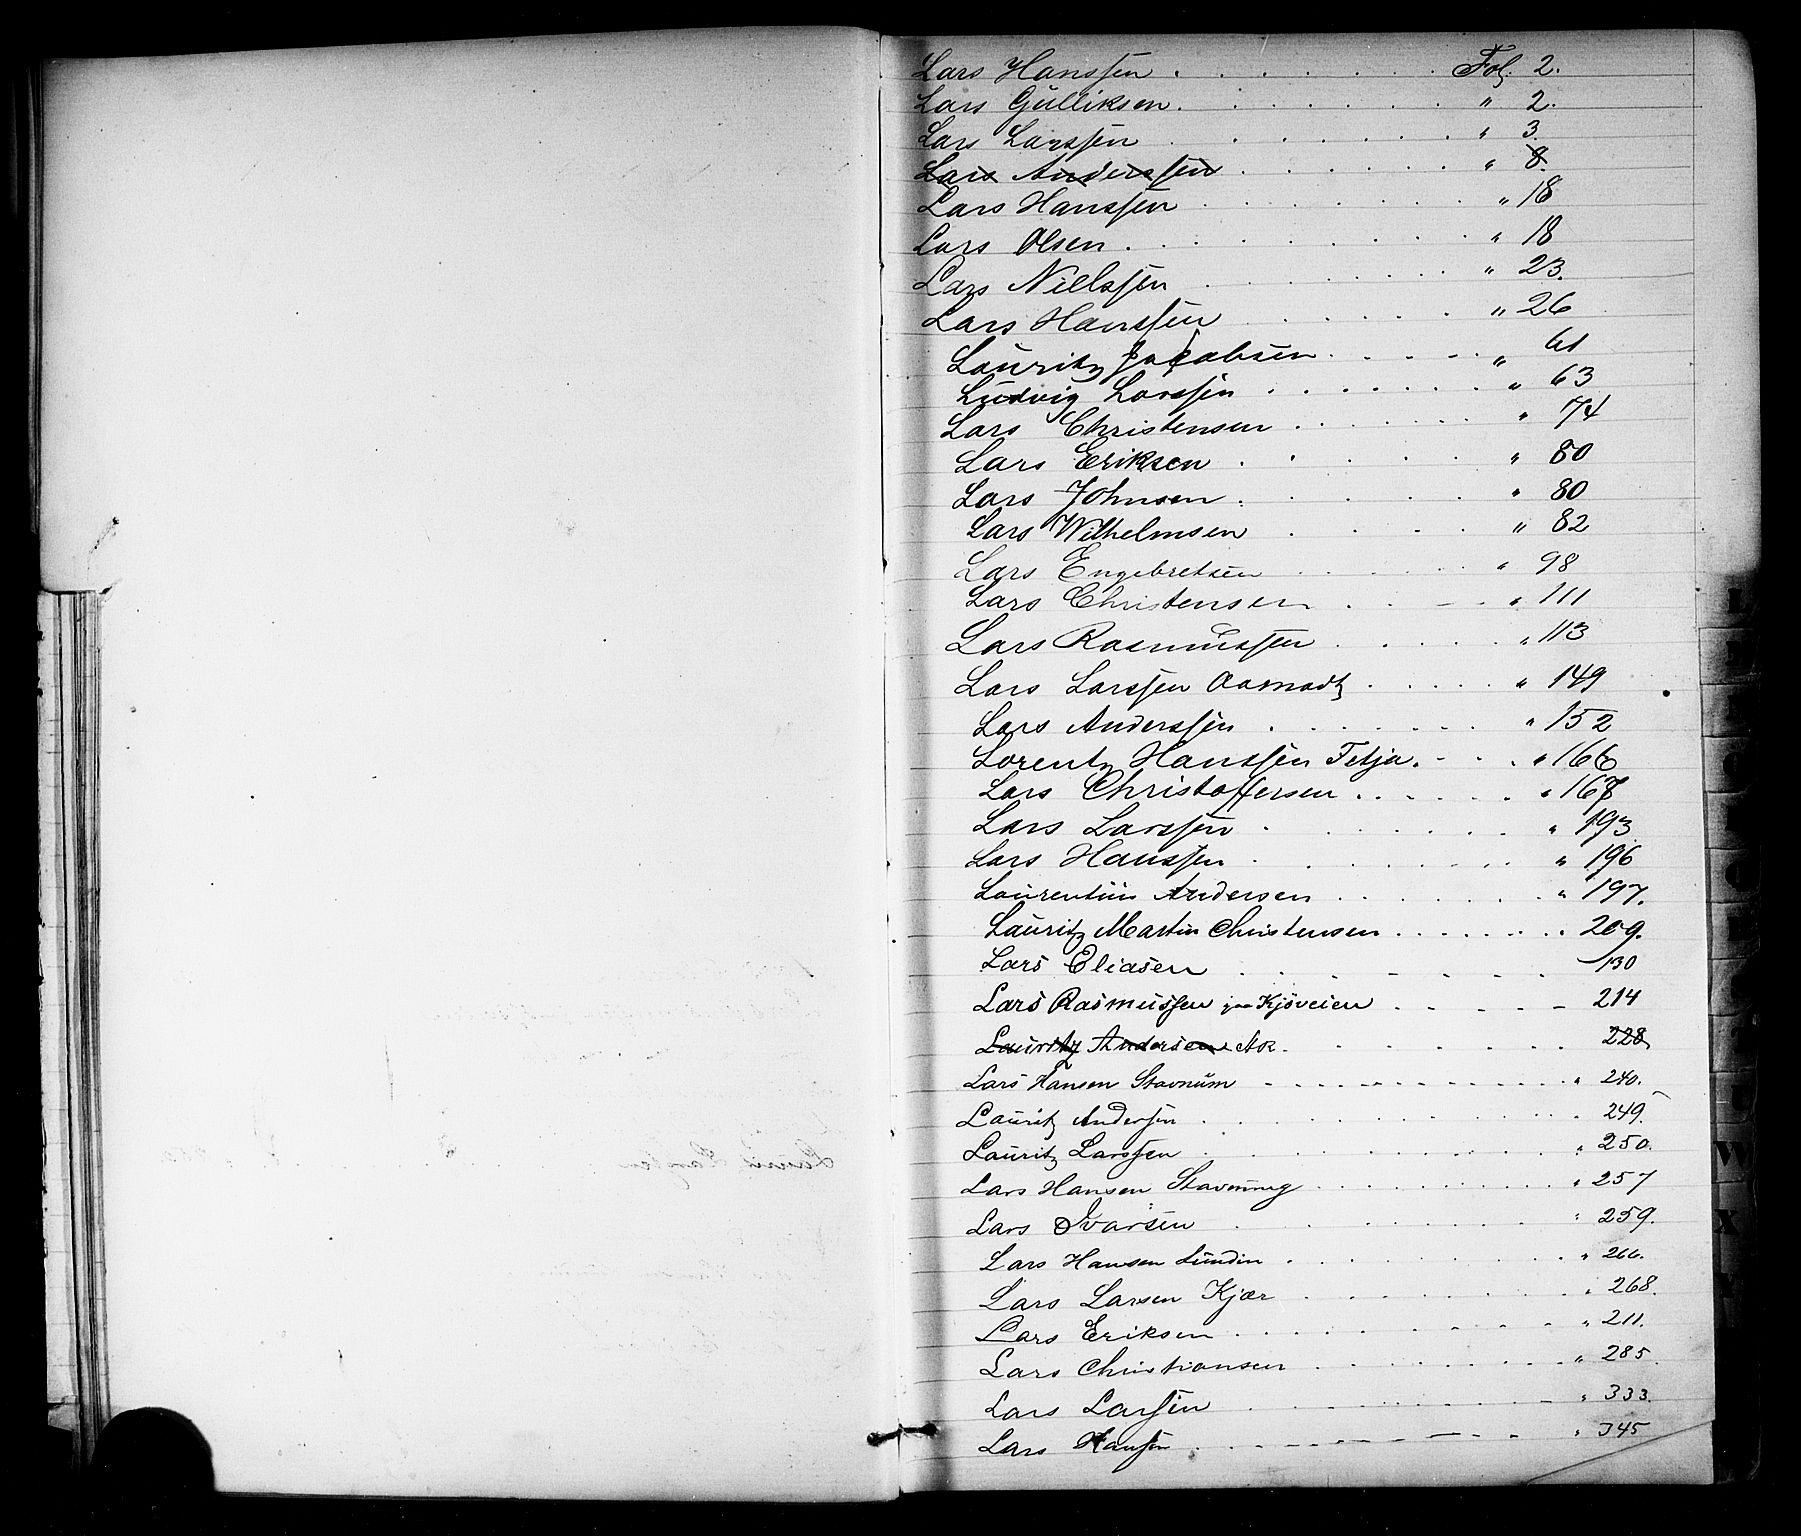 Lars Hanssen . . . . . . . Fol. 2.
Lars Gulliksen . . . . . . " 2.
Lars Larssen . . . . . . " 3.
Lars Anderssen . . . . . . " 8.
Lars Hanssen . . . . . . " 18
Lars Olsen . . . . . . " 18
Lars Nielssen . . . . . . " 23.
Lars Hanssen . . . . . . " 26
Lauritz Jacobsen . . . . " 61
Ludvig Larssen . . . . . " 63
Lars Christensen . . . . . " 74
Lars Eriksen . . . . . " 80
Lars Johnsen . . . . . " 80
Lars Wilhelmsen . . . . " 82
Lars Engebretsen . . . . . " 98
Lars Christensen . . . . " 111
Lars Rasmussen . . . . . " 113
Lars Larssen Aamodt . . . . . " 149
Lars Anderssen . . . . . " 152
Lorentz Hanssen Fetja . . . . " 166
Lars Christoffersen . . . . . " 167
Lars Larssen . . . . . " 193
Lars Hanssen . . . . . " 196
Laurentius Andersen . . . . . " 197.
Lauritz Martin Christensen . . . . . . . 209.
Lars Eliasen . . . . . . 130
Lars Rasmussen paa Kjöveien . . . . . 214
Lauritz Andersen Ak. . . . . . . 228
Lars Hansen Stavnum . . . . . . " 240.
Lauritz Anderssen . . . . . . " 249.
Lauritz Larssen . . . . . . " 250.
Lars Hansen Stavnung . . . . . . " 257
Lars Ivarsen . . . . . . " 259.
Lars Hansen Lundin . . . . . " 266.
Lars Larsen Kjær . . . . . " 268.
Lars Eriksen . . . . . . " 211.
Lars Christiansen . . . . . " 285.
Lars Larssen . . . . . . " 333.
Lars Hansen . . . . . . " 345
W
X